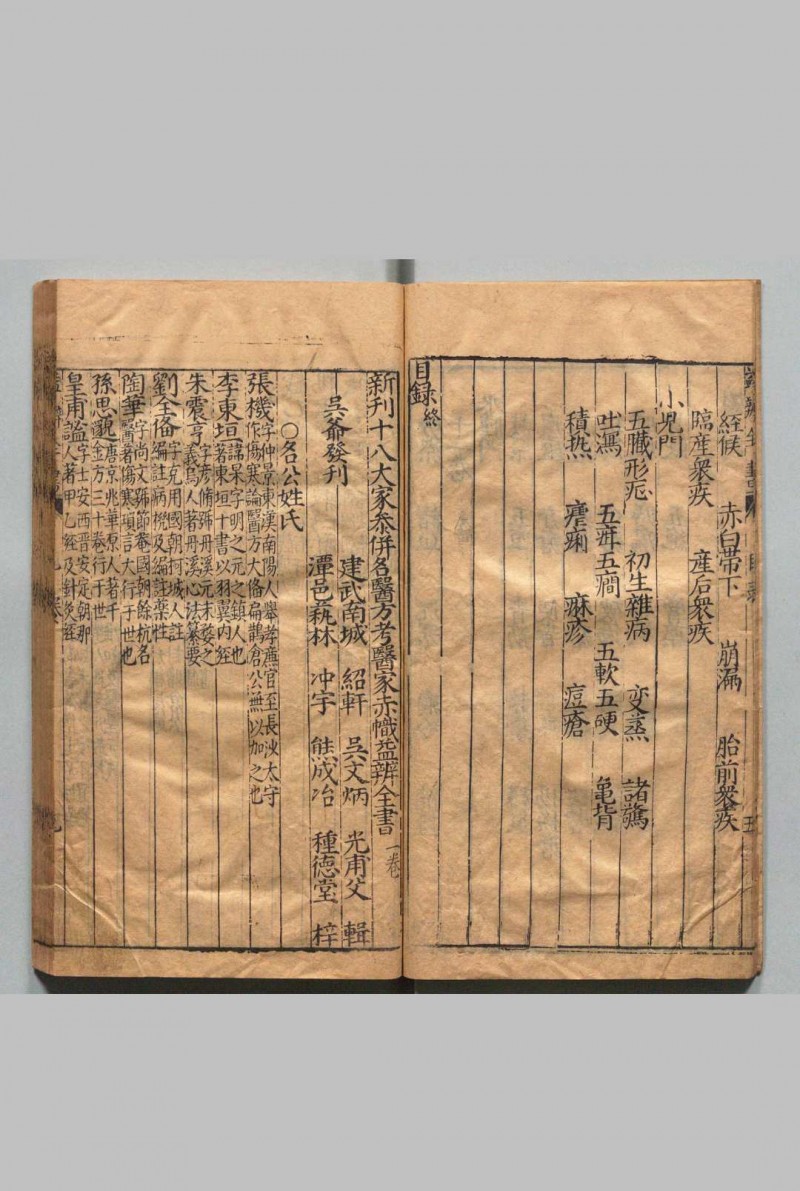 經候　赤白帶下　崩漏　胎前衆疾
臨産衆疾　産后衆疾
小児門
五臓形死　初生雜病　变蒸　諸驚
吐瀉　五疳五癎　五軟五硬　亀背
積热　瘧痢　麻疹　痘瘡
目録終
新刊十八大家参併名醫方考醫家赤幟益辨全書一卷
建武南城　紹軒　吳文炳　光甫父　輯
吳爺發刊　潭邑藝林　冲宇　熊成冶　種德堂　梓
○各公姓氏
張機字仲景東漢南陽人舉孝亷官至長沙太守
作傷寒論醫方大俻扁鵲倉公無以加之也
李東垣諱杲字明之元之鎮人也
著東垣十書以羽翼内經
朱震亨字彦脩號丹溪元末婺之
義烏人著丹溪心法纂要
劉全俻字克用國朝柯城人註
編註病機及編註藥性
陶華字尚文號節菴國朝餘杭名
醫著傷寒瑣言大行于世也
孫思邈唐京兆華原人著千
金方三十卷行于世
皇甫謐字士安西晋安定朝那
人著甲乙經及針灸經